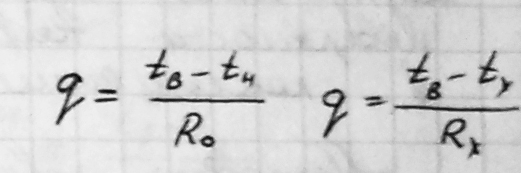 q = (t_в − t_н) / R_о    q = (t_в − t_x) / R_x